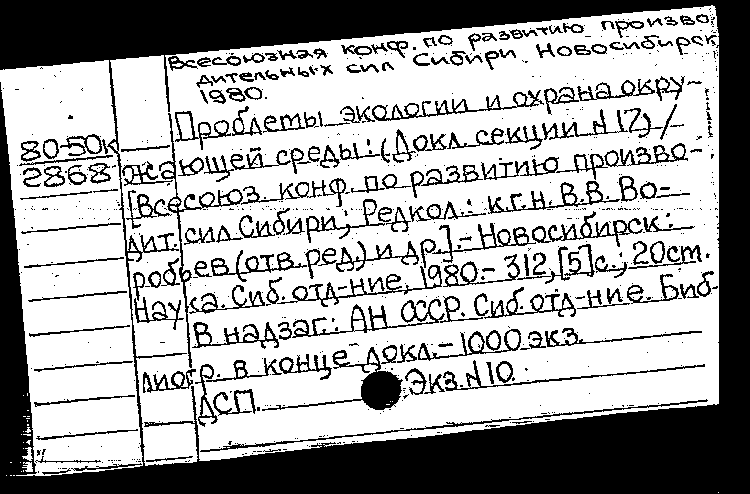 Всесоюзная конф. по развитию произво
дительных сил Сибири. Новосибирск
1980.
Проблемы экологии и охрана окру-
80-50к
2868
жающей среды: (Докл. секции N 17) /
[Всесоюз. конф. по развитию произво-
дит. сил Сибири; Редкол.: к.г.н. В.В. Во-
робьев (отв. ред.) и др.]. - Новосибирск:
Наука. Сиб. отд-ние, 1980. - 312, [5] с.; 20 ст.
В надзаг.: АН СССР. Сиб. отд-ние. Биб-
лиогр. в конце докл. - 1000 экз.
ДСП. Экз. N 10.